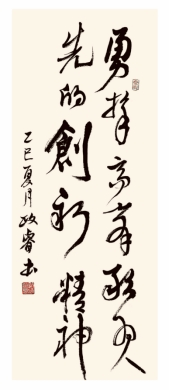 勇攀高峯敢为人
先的創新精神
乙巳夏月政睿书